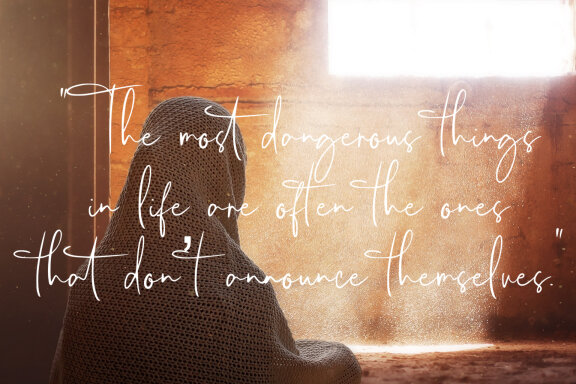 "The most dangerous things
in life are often the ones
that don't announce themselves."